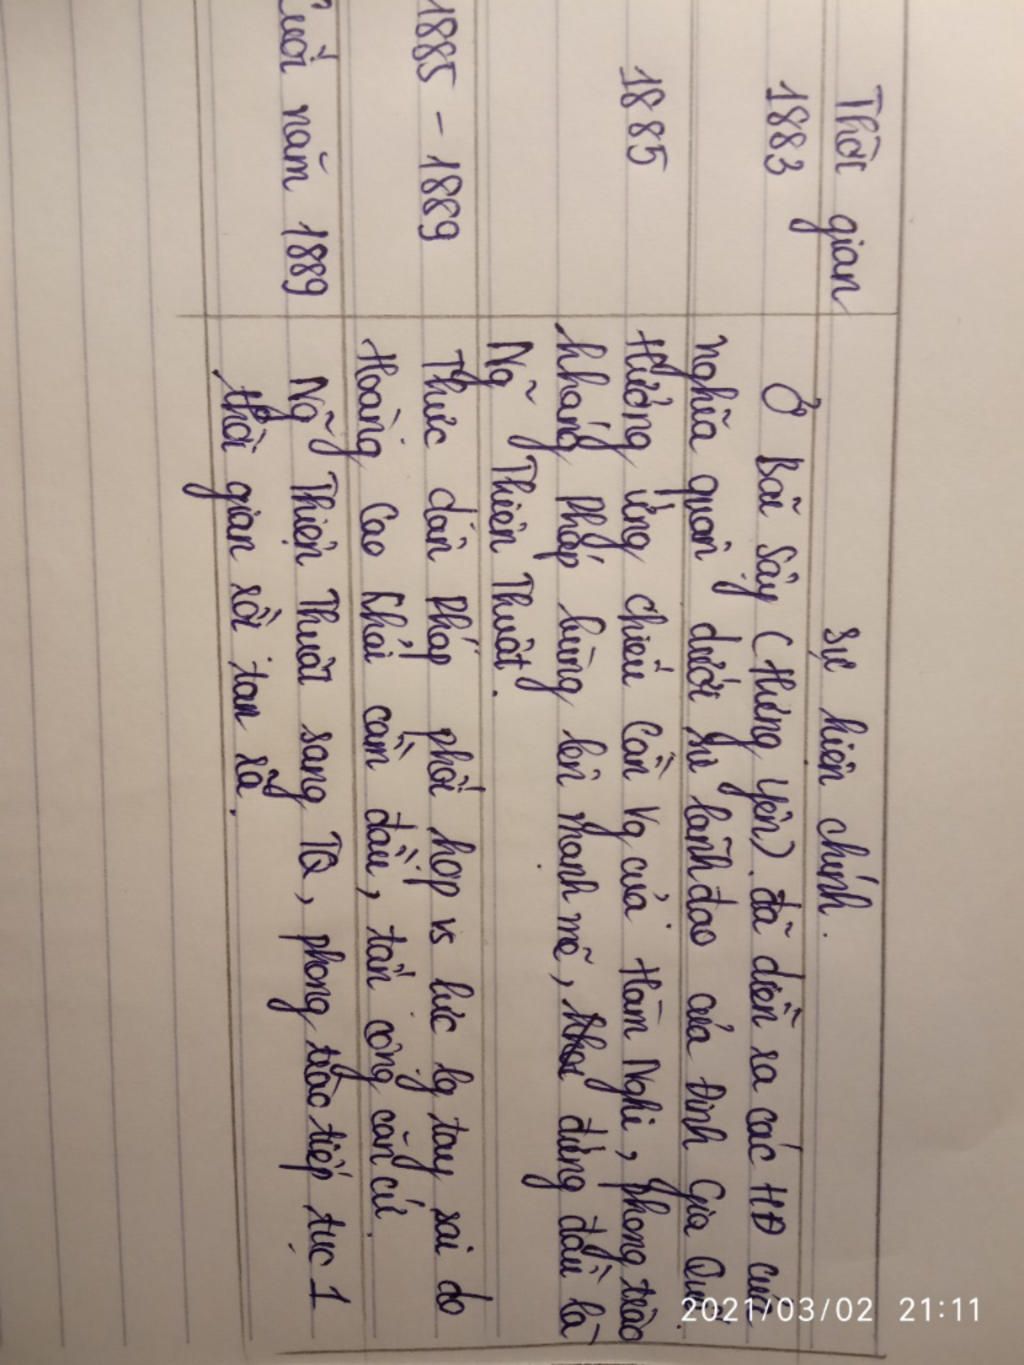 Thời gian
Sự kiện chính.
1883
Ở Bãi Sậy (Hưng Yên) đã diễn ra các HĐ của
nghĩa quân dưới sự lãnh đạo của Đinh Gia Quế.
1885
Hưởng ứng chiếu Cần Vg của Hàm Nghi, phong trào
kháng Pháp bùng lên mạnh mẽ, đứng đầu là
Ng~ Thiện Thuật.
1885 - 1889
Thực dân Pháp phối hợp vs lực lg tay sai do
Hoàng Cao Khải cầm đầu, tấn công căn cứ.
Cuối năm 1889
Ng~ Thiện Thuật sang TQ, phong trào tiếp tục 1
thời gian rồi tan rã.
2021/03/02 21:11